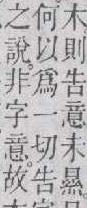 木則告意未㬎
何以爲一切告
之說。非字意。故